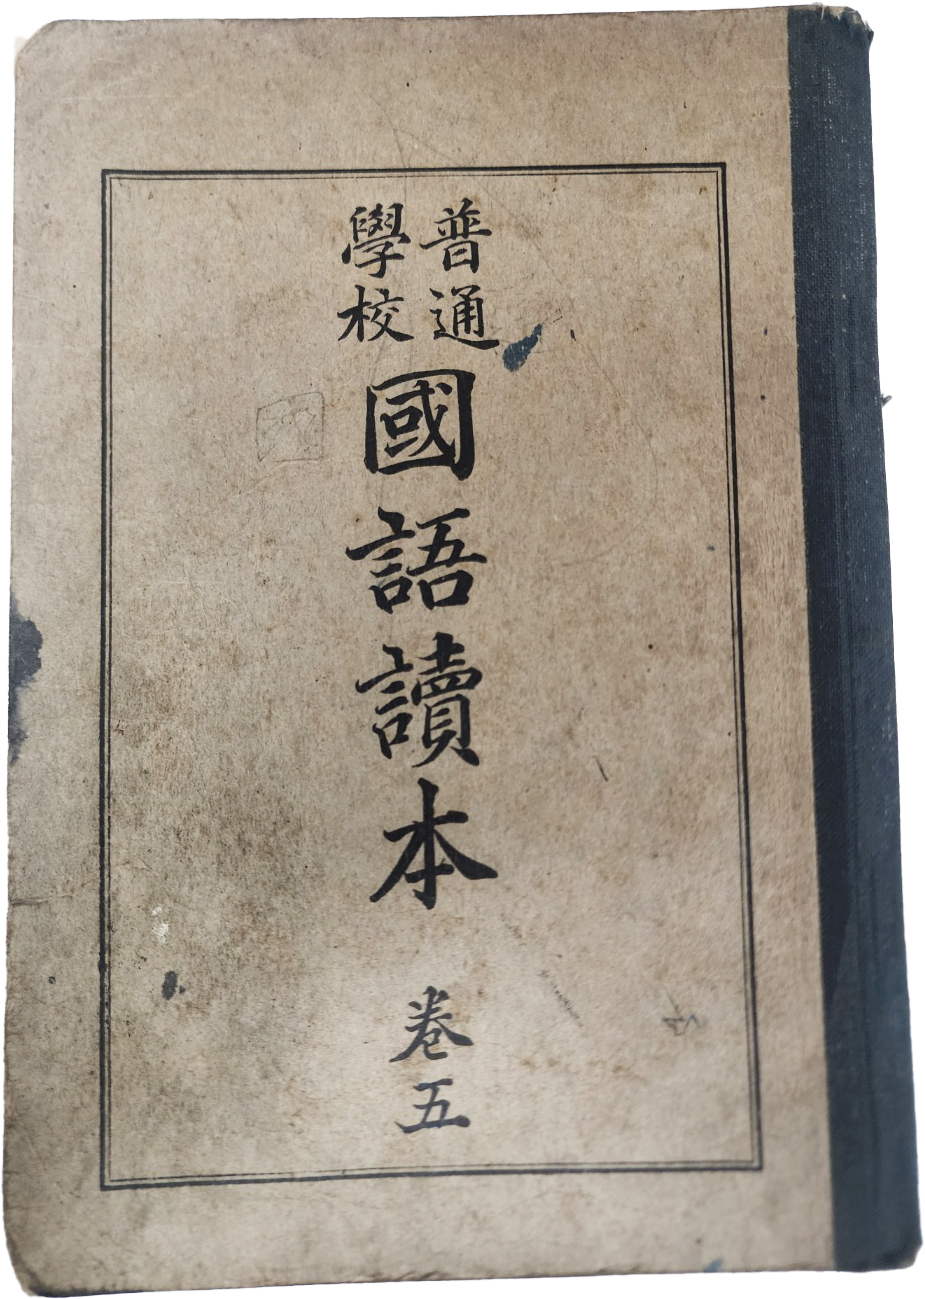 普通
學校
國語讀本
卷五